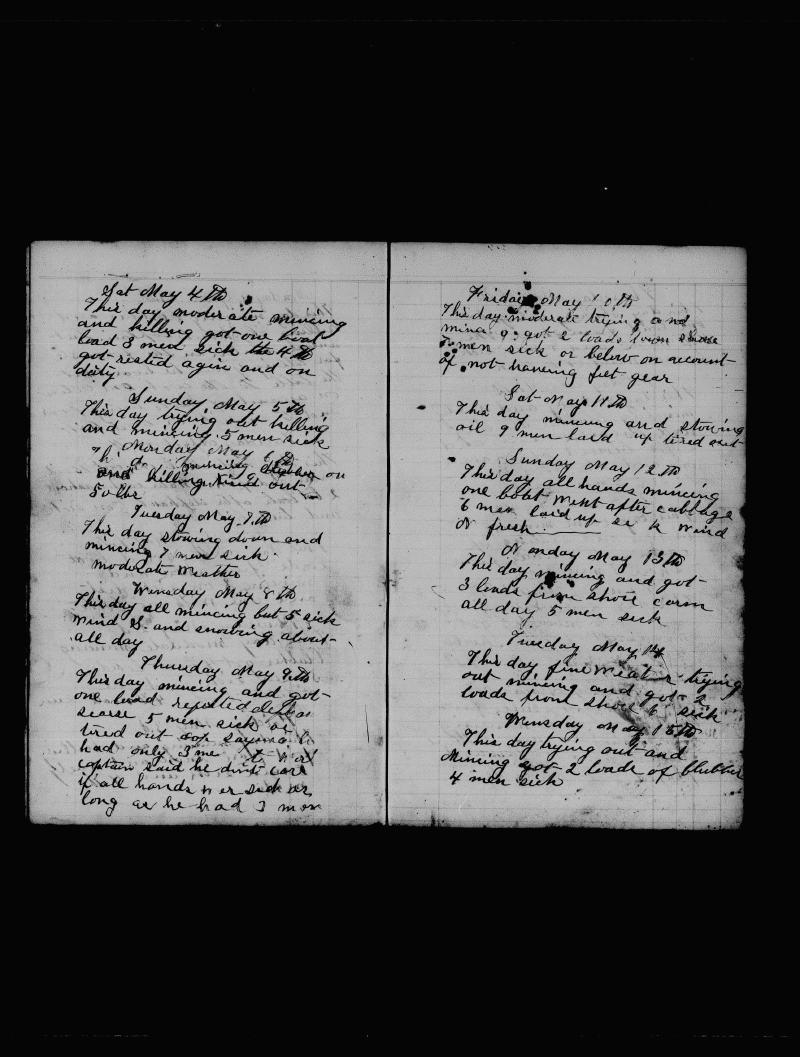 Sat May 4th
This day moderate mincing
and killing got one boat
load 3 men sick the 4th
got rested agin and on
duty
Sunday May 5th
This day trying out killing
and mincing. 5 men sick
Monday May 6th
mincing on
and killing tried out
50 lbr
Tuesday May 7th
This day stowing down and
mincing 7 men sick.
moderate weather
Wensday May 8th
This day all mincing but 5 sick
wind S. and snowing about
all day
Thursday May 9th
This day mincing and got
one load reported
scarse 5 men sick or
tired out cap
had only 3 me
captain said he dint care
if all hands wer sick as
long as he had 3 men
Friday May 10th
This day moderate trying and
minc g. got 2 loads from shore
men sick or below on account
of not haveing feet gear
Sat May 11th
This day mincing and stowing
oil 9 men laid up tired out
Sunday May 12th
This day all hands mincing
one boat went after cabbage
6 men laid up si k wind
N fresh
Monday May 13th
This day mincing and got
3 loads from shore carm
all day 5 men sick
Tuesday May 14
This day fine weat r trying
out mincing and got 2
loads from shore 6 sick
Wensday May 15th
This day trying out and
mincing got 2 loads of blubber
4 men sick